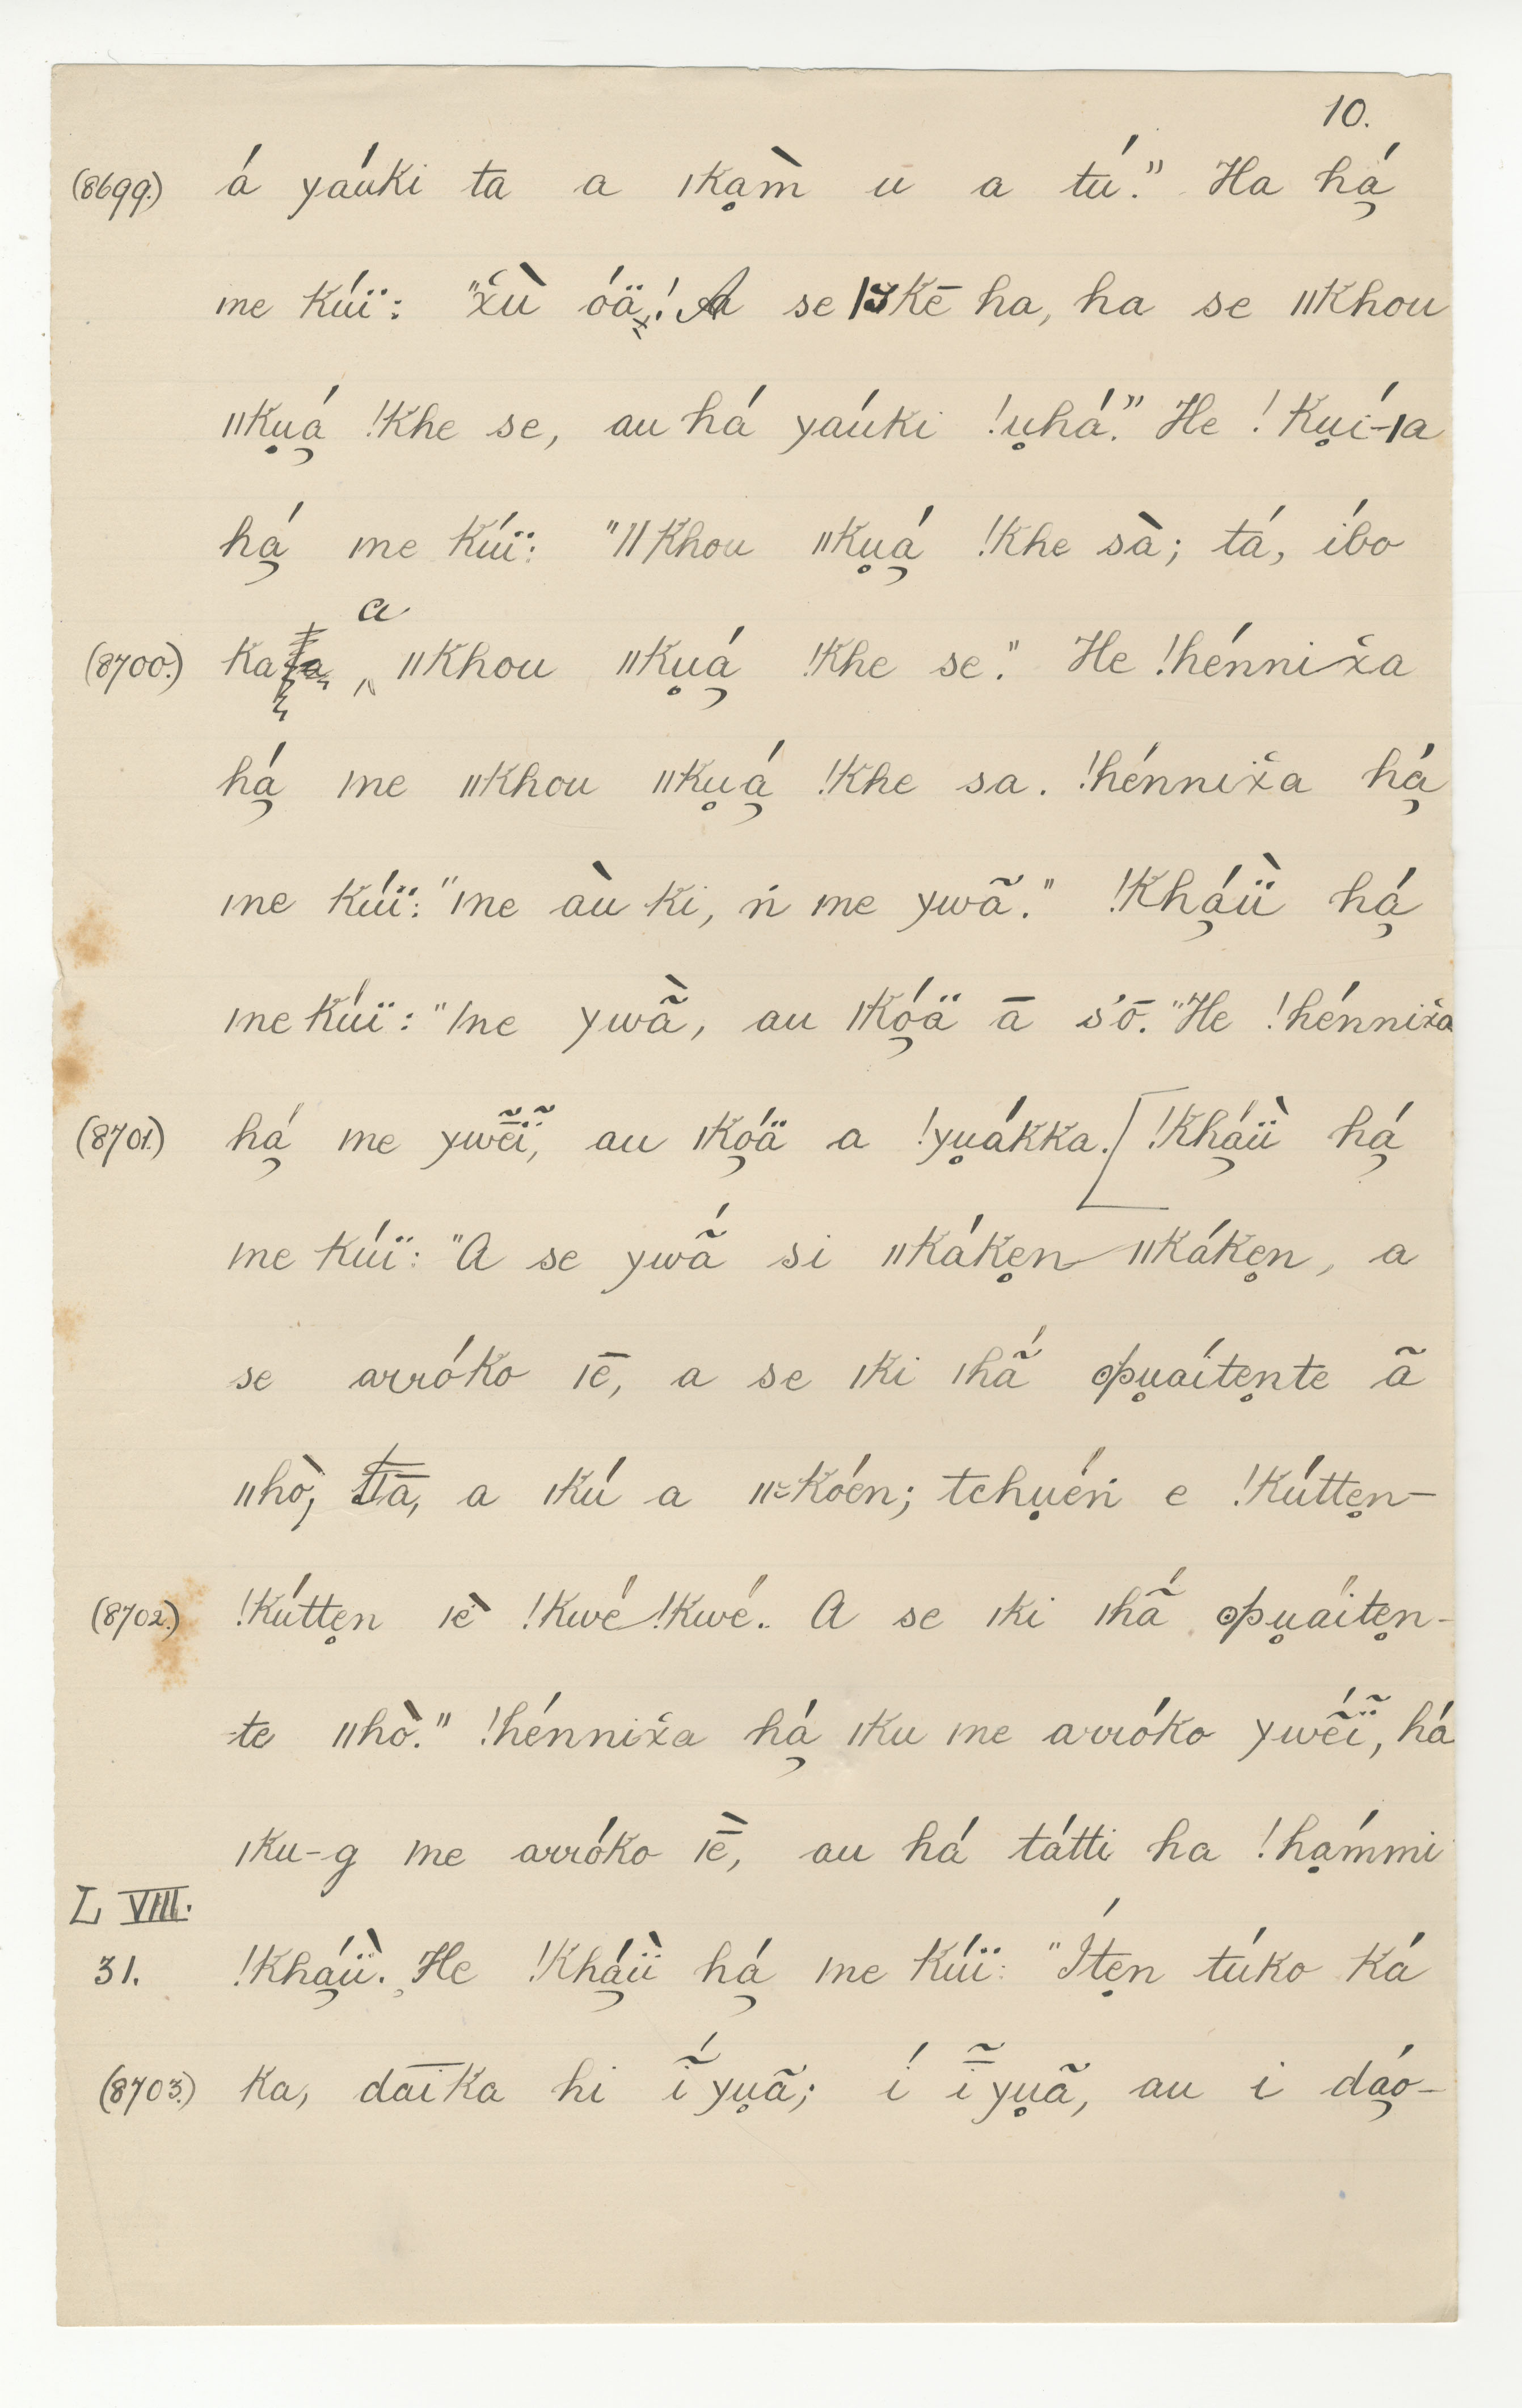 10.
(8699.) á yáuki ta a ǀkḁm̀ ū a tú." Ha há̡
me kúï: "x̌ù óä! A se ǀ3kē ha, ha se ǁkhou
ǁku̥á̡ !khe se, au há yáuki !u̥há." He !ku̥í-ǀa
há̡ me kúï: "ǁkhou ǁku̥á̡ !khe sà; tá, íbo
a
(8700.) ka ‸ ǁkhou ǁku̥á̡ !khe se." He !hénnix̌a
há̡ ǀne ǁkhou ǁku̥á̡ !khe sa. !hénnix̌a há̡
ǀne kúï: "ǀne àu ki, ń ǀne ywã." !khá̡üì há̡
ǀne kúï: "ǀne ywã̀, au ǀkó̡ä ā s'ō." He !hénnix̌a
(8701.) há̡ ǀne ywẽĩ, au ǀkó̡ä a !yu̥ákka. [!khá̡üì há̡
ǀne kúï: "A se ywã́ si ǁkáke̥n ǁkáke̥n, a
se arróko ǀē, a se ǀki ǀhã́ ʘpu̥áite̥nte ã
ǁhò, ta, a ǀkú a ǁkóen; tchu̥éṅ e !kútte̥n-
(8702.) !kútte̥n ǀè !kwé !kwé. A se ǀki ǀhã́ ʘpu̥áite̥n-
te ǁhò." !hénnix̌a há̡ ǀku ǀne arróko ywẽ́ĩ, há
ǀku-g ǀne arróko ǀḕ, au há tátti ha !ha̡mmi
L VIII.
31. !khá̡üì. He !khá̡üì há̡ ǀne kúï: "Íte̥n túko ká
(8703.) ka, daīka hi ĩ́ yu̥ã; í ĩ̄ yu̥ã, au i dá̡o-